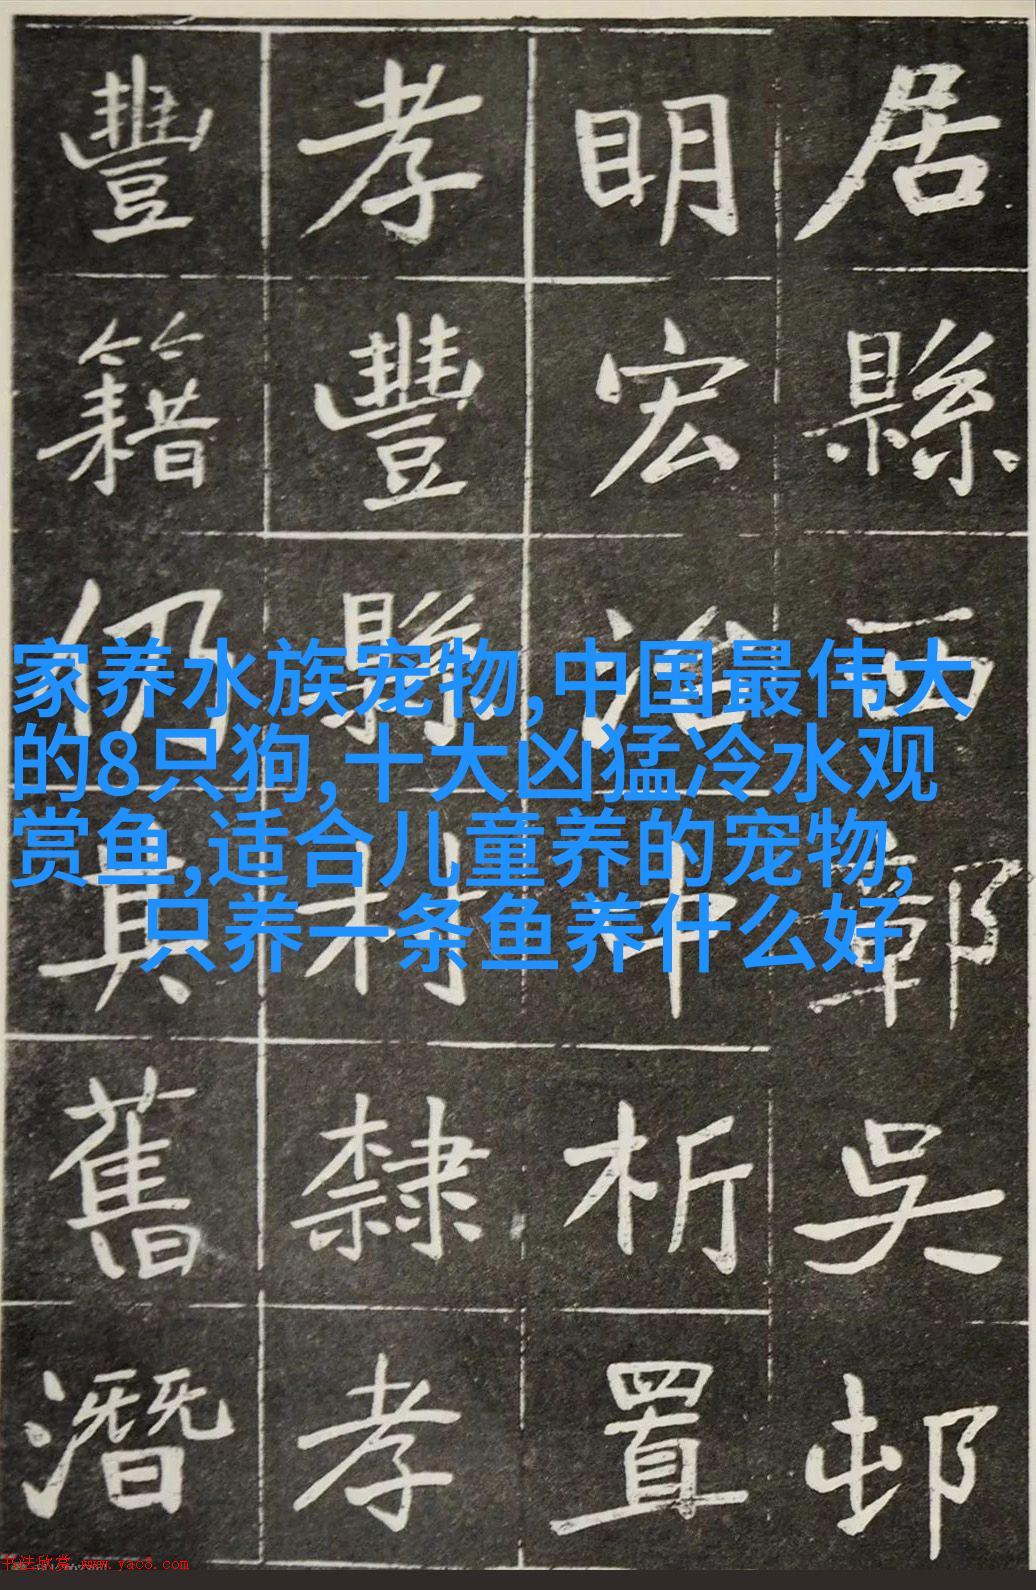 居縣西鄣吳邨
明宏治中析置
孝豐縣村隸孝
豐籍仍真舊潛
家养水族宠物,中国最伟大
的8只狗,十大凶猛冷水观
赏鱼,适合儿童养的宠物,
只养一条鱼养什么好
书法欣赏 www.yac8.com